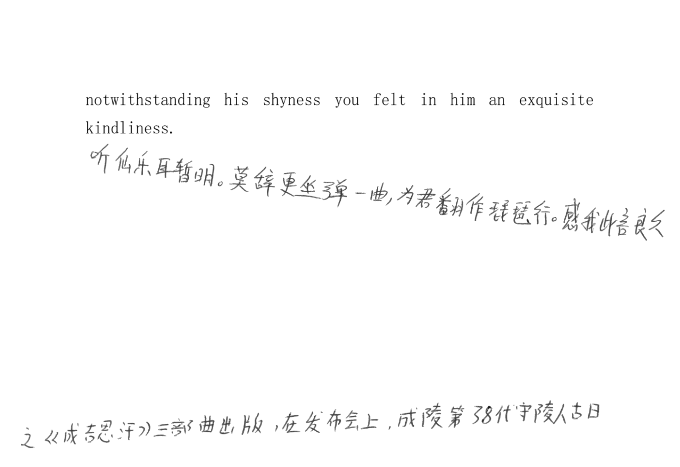 notwithstanding his shyness you felt in him an exquisite
kindliness.
听仙乐耳暂明。莫辞更坐弹一曲,为君翻作琵琶行。感我此言良久
之《成吉思汗》三部曲出版,在发布会上,成陵第38代守陵人古日